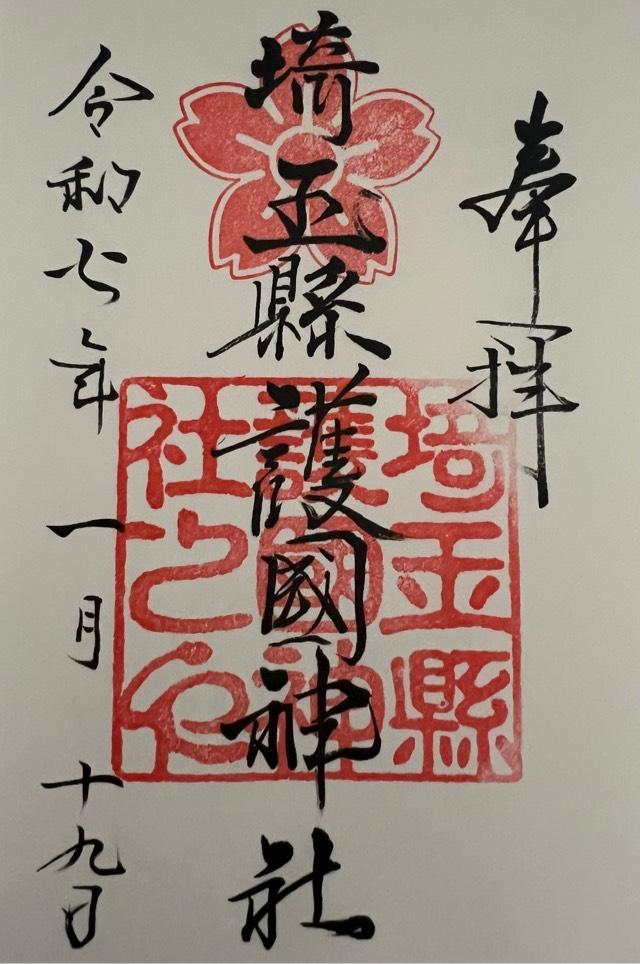 奉拝
埼玉縣護國神社
令和七年一月十九日
埼玉縣
護國神
社之印